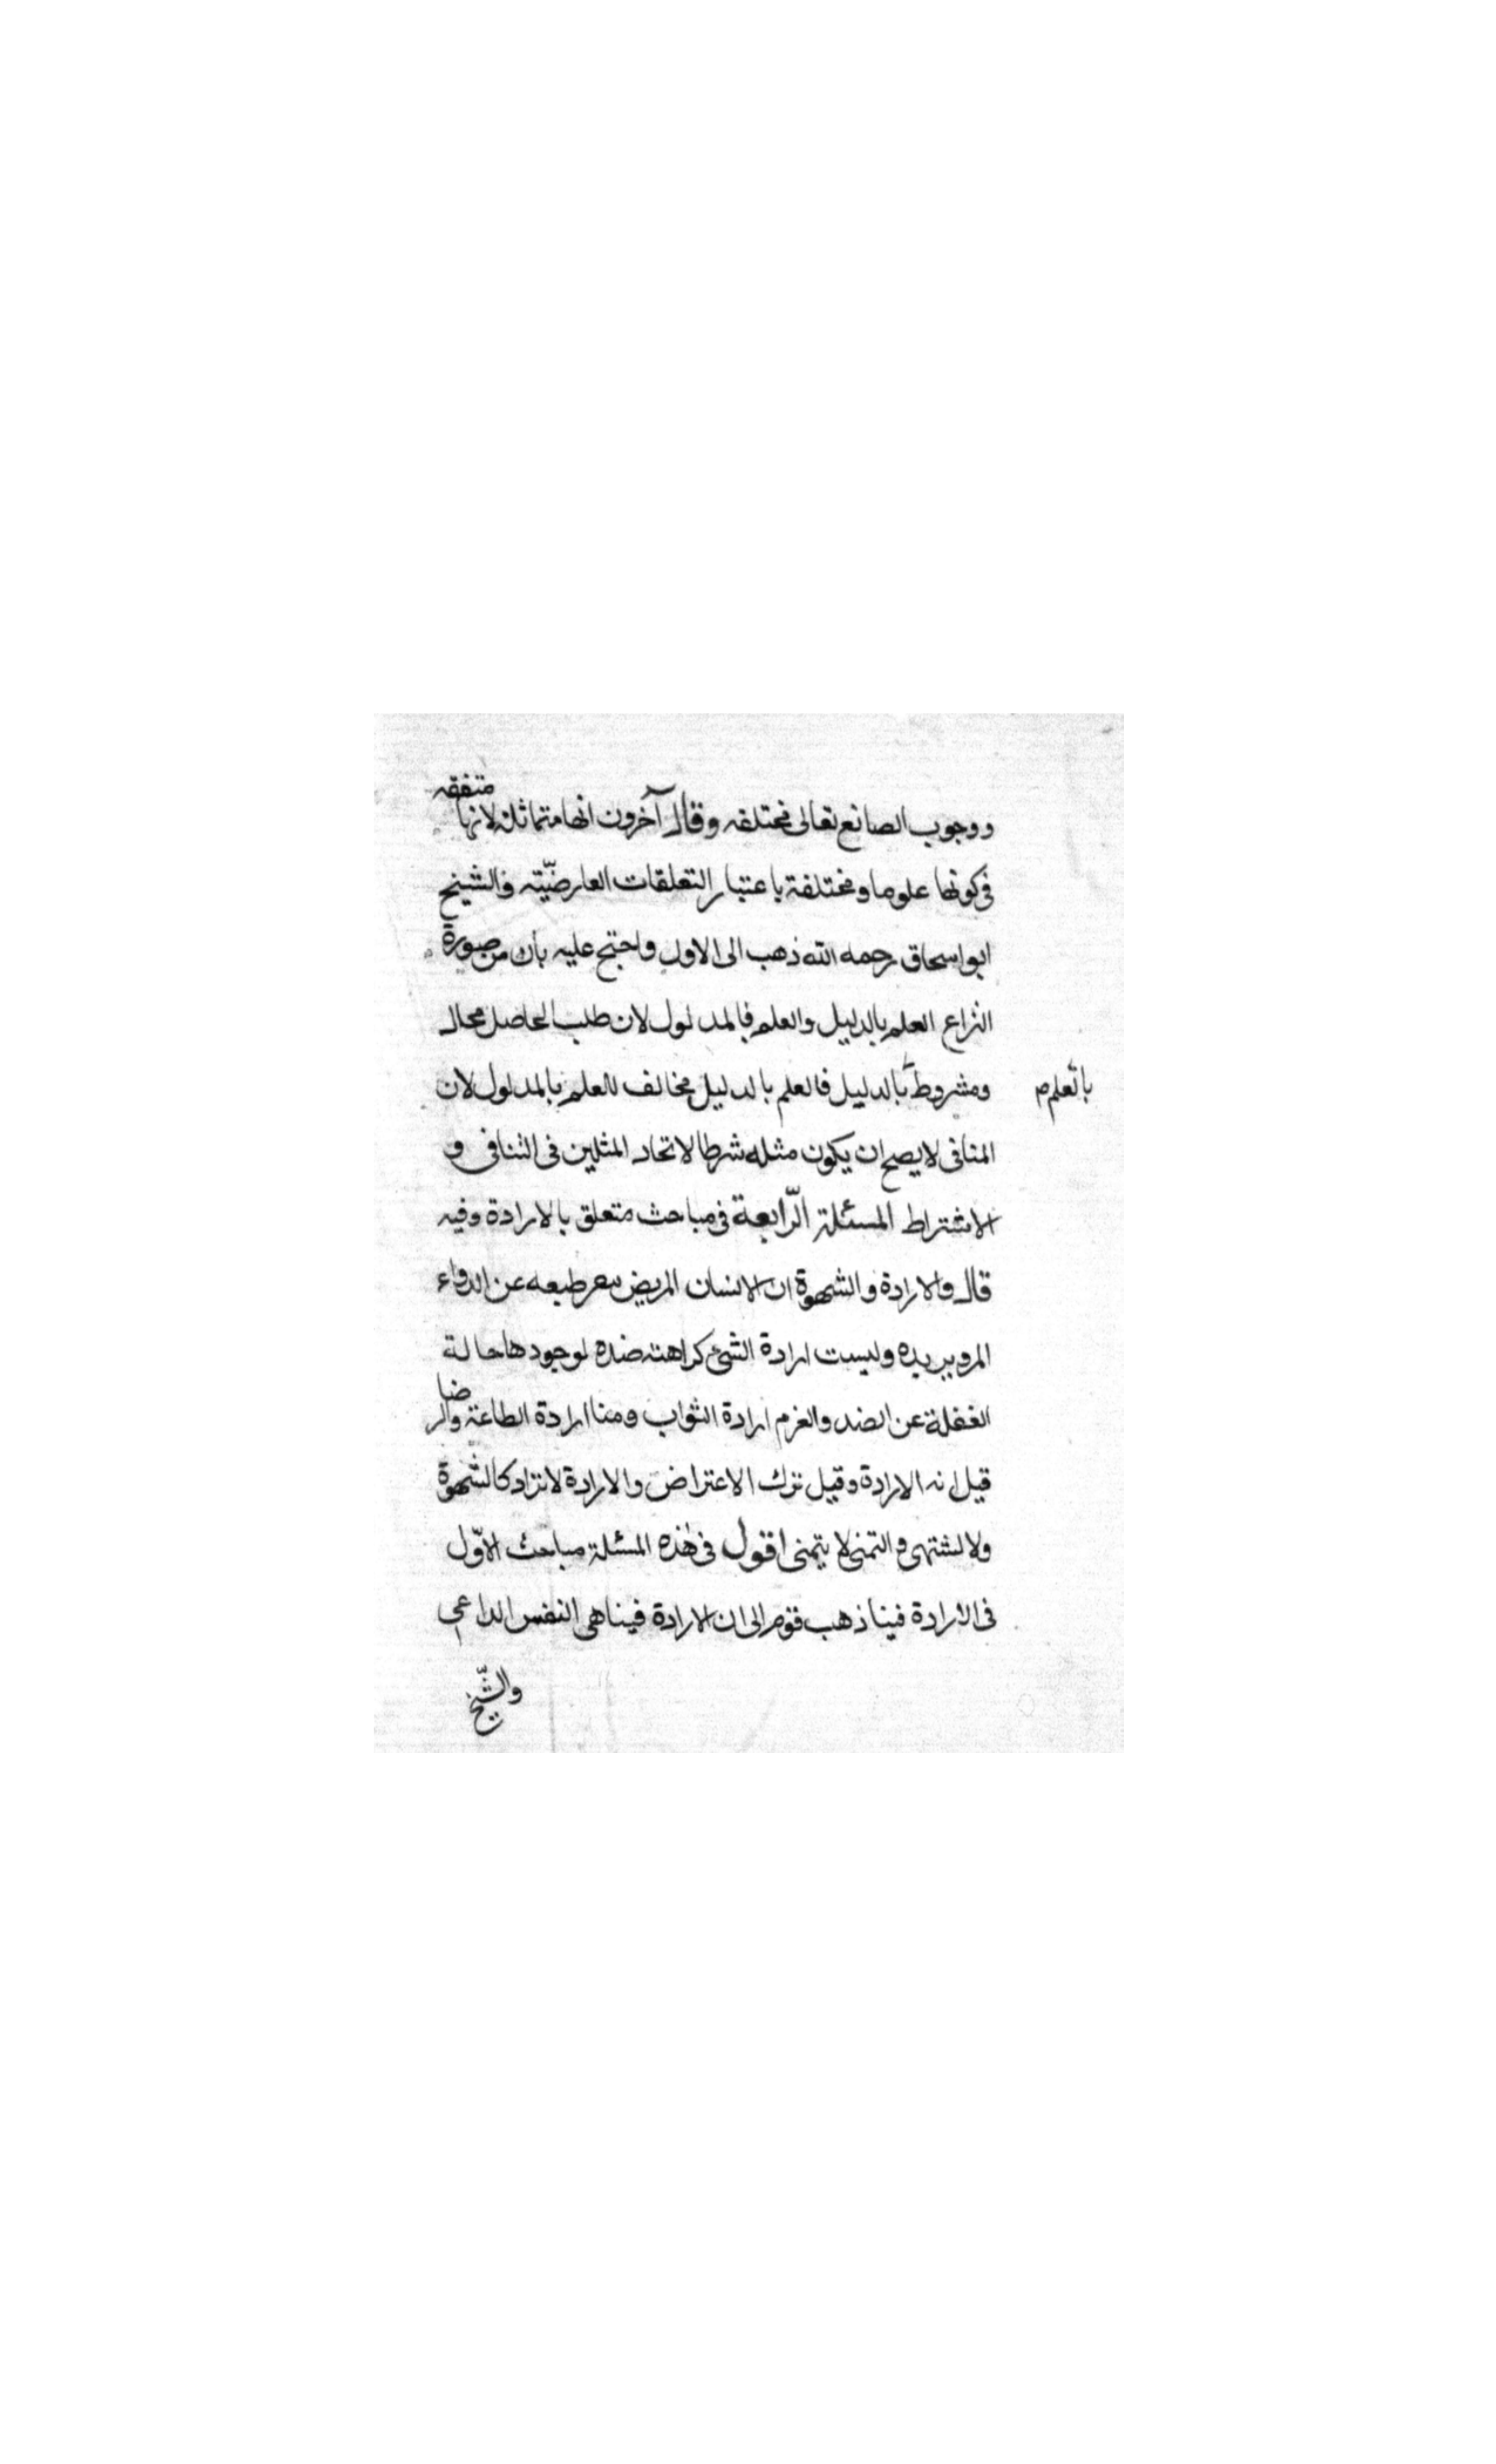 ووجوب الصانع تعالى مختلفه وقال آخرون انها متماثلة لانها متفقه
فى كونها علوما ومختلفة باعتبار التعلقات العارضّيته والشيخ
ابو اسحاق رحمه الله ذهب الى الاول واحتج عليه بان من صورة
النزاع العلم بالدليل والعلم فالمدلول لان طلب الحاصل محال
ومشروط بالدليل فالعلم بالدليل مخالف للعلم بالمدلول لان
بالعلم م
المنافى لا يصح ان يكون مثله شرطا لاتحاد المثلين فى التنافى و
الاشتراط المسئلة الرّابعة فى مباحث متعلق بالارادة وفيه
قال والارادة والشهوة ان الانسان المريض ىىفر طبعه عن الدواء
المر ويريده وليست ارادة الشئ كراهته ضده لوجودها حالة
الغفلة عن الضد والعزم ارادة الثواب ومنا ارادة الطاعة والرضا
قيل انه الارادة وقيل ترك الاعتراض والارادة لا تراد كالشهوة
ولا تشتهى والتمنى لا يتمنى اقول فى هذه المسئلة مباحث الاوّل
فى الارادة فينا ذهب قوم الى ان الارادة فينا هى النفس الداعى
والشّيخ